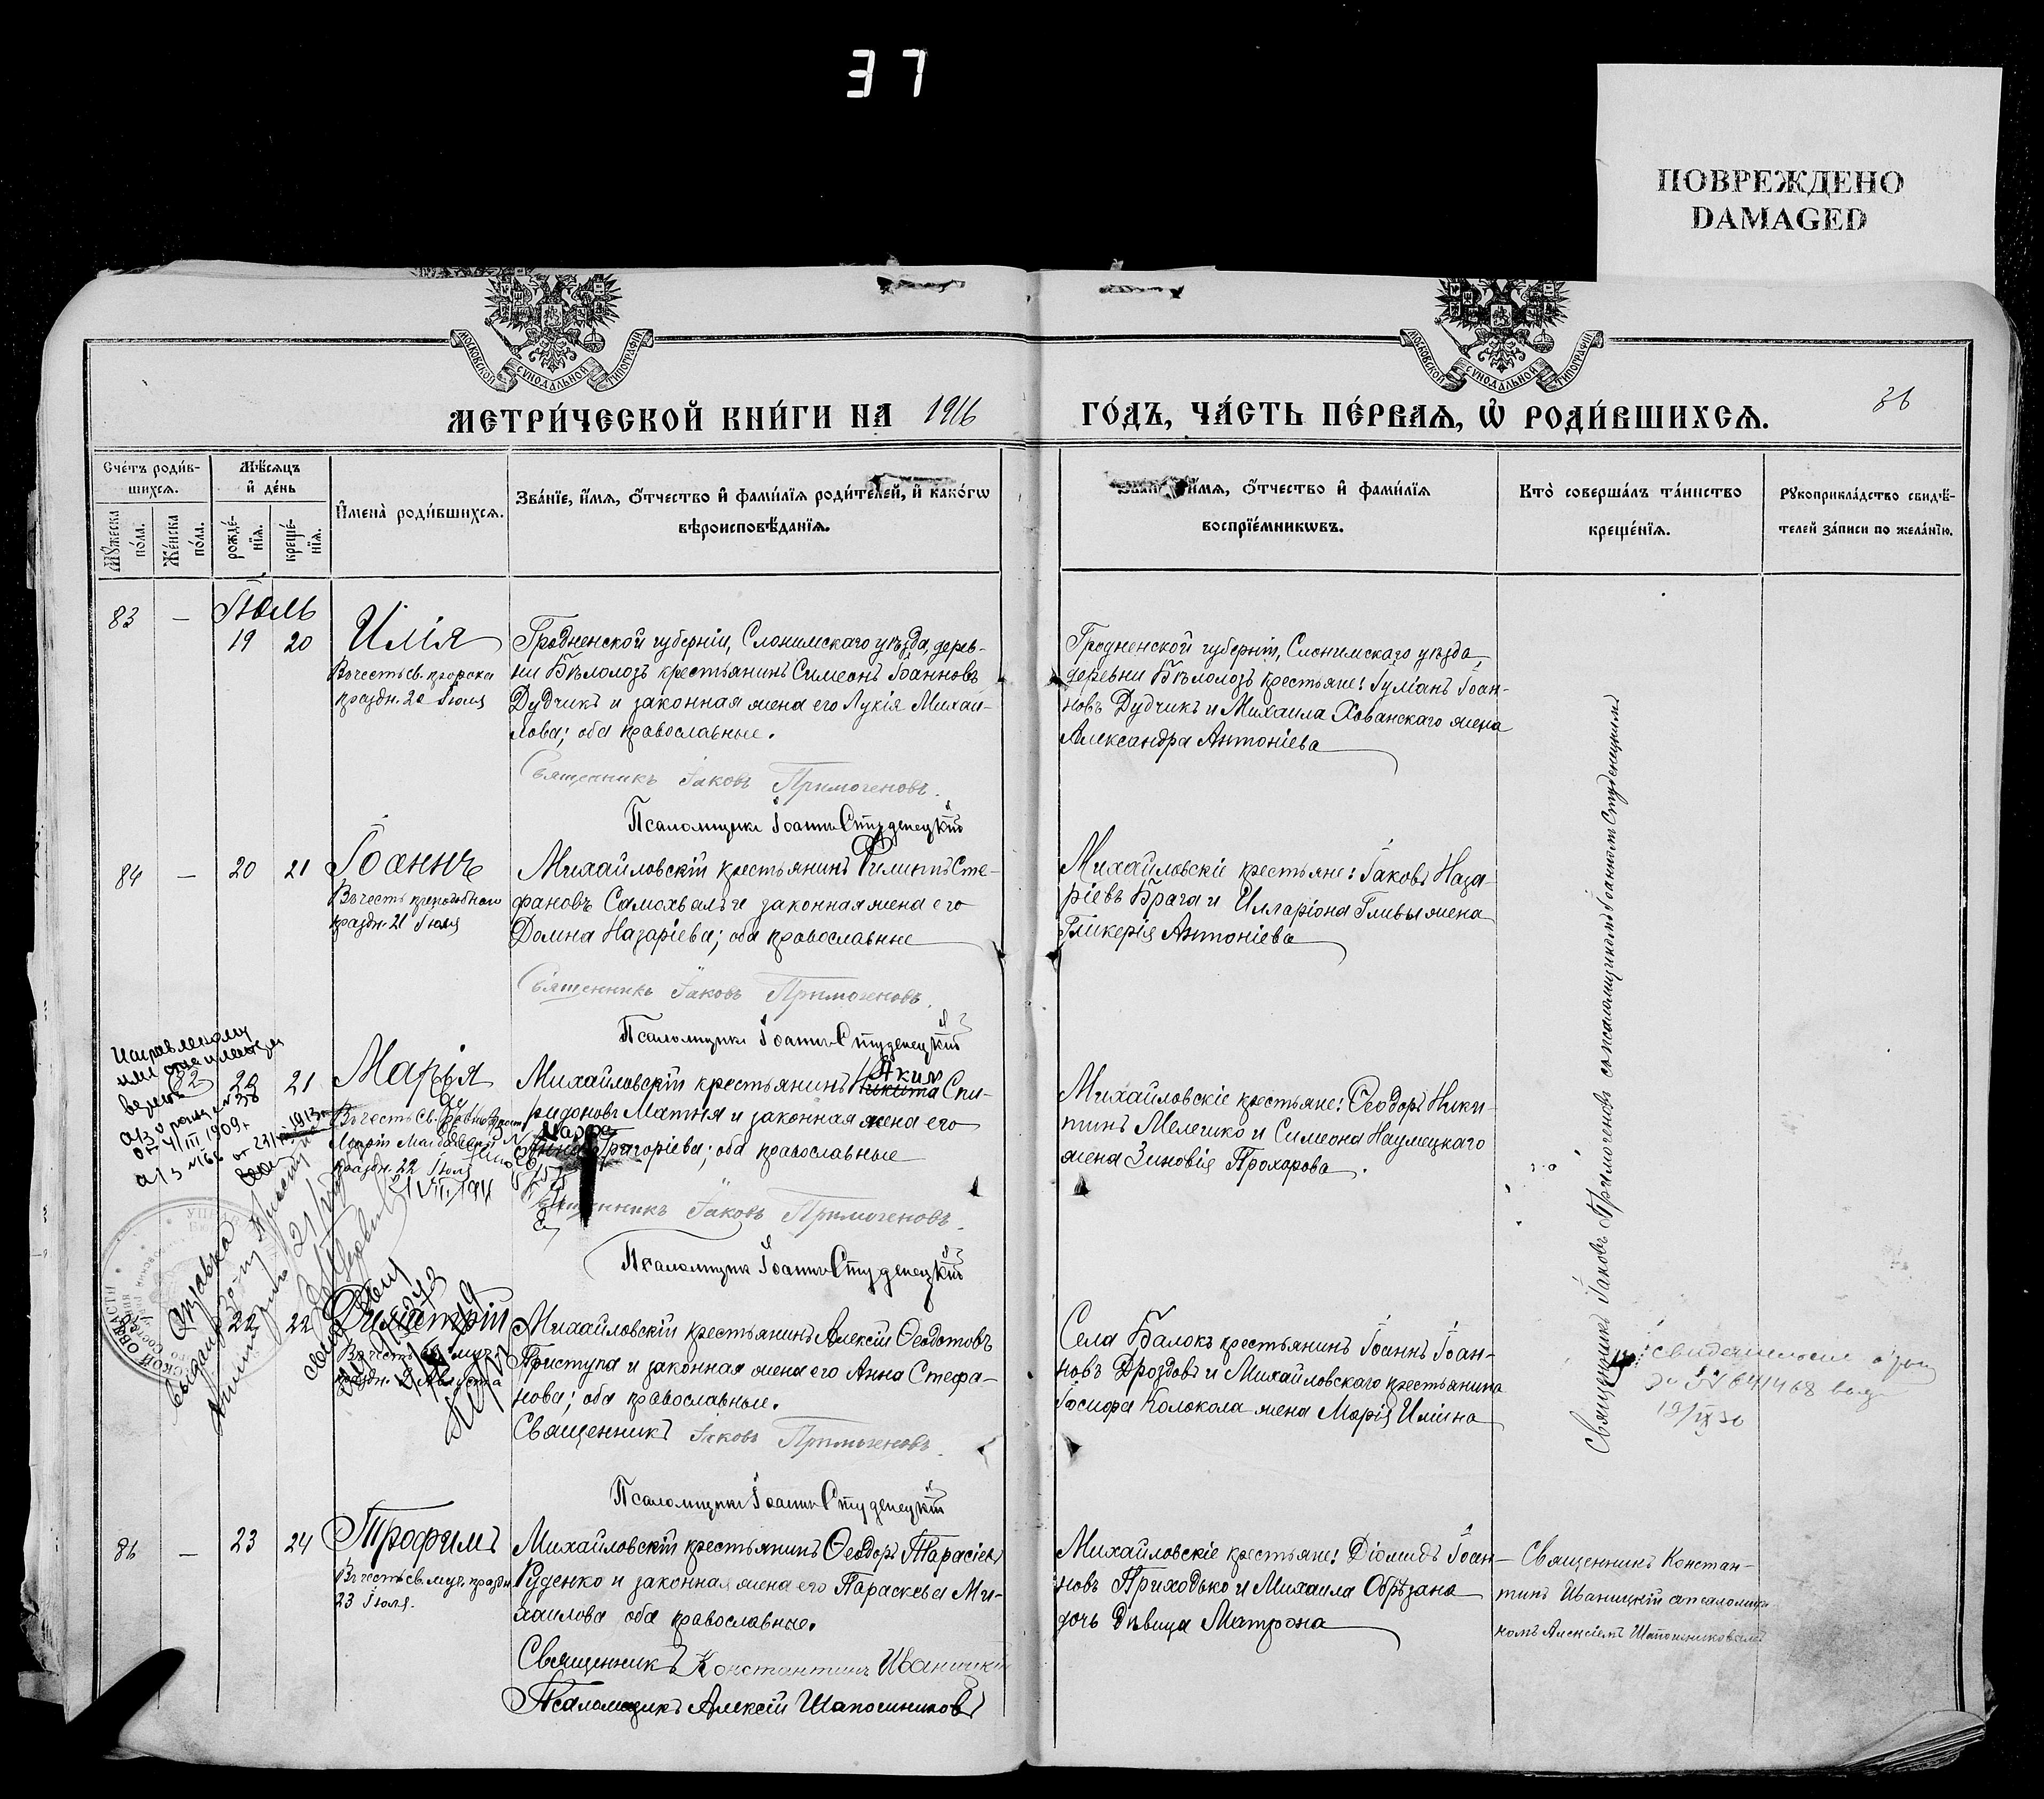 37
ПОВРЕЖДЕНО
DAMAGED
МОСКОВСКОЙ СѴНОДАЛЬНОЙ ТИПОГРАФІИ
МОСКОВСКОЙ СѴНОДАЛЬНОЙ ТИПОГРАФІИ
МЕТРИ́ЧЕСКОЙ КНИ́ГИ НА 1916
ГО́ДЪ, ЧА́СТЬ ПЕ́РВАѦ, Ѡ҆ РОДИ́ВШИХСѦ.
36
Сче́тъ роди́в-
шихсѧ.
Мѣ́сѧцъ
и҆ де́нь
Мꙋ́жеска
по́ла.
Же́нска
по́ла.
рожде́-
нїѧ.
креще́-
нїѧ.
И҆мена̀ роди́вшихсѧ.
Зва́нїе, и҆́мѧ, ѻ҆́тчество и҆ фами́лїѧ роди́телей, и҆ како́гѡ
вѣроисповѣ́данїѧ.
и҆́мѧ, ѻ҆́тчество и҆ фами́лїѧ
воспрїе́мникѡвъ.
Кто̀ соверша́лъ та́инство
креще́нїѧ.
Рꙋкоприкла́дство свидѣ́-
телей за́писи по жела́нїю.
83 — Іюль
19 20 Илія
Въ честь св. пророка
праздн. 20 Іюля
Гродненской губерніи, Слонимскаго уѣзда, дерев-
ни Бѣлолозъ крестьянинъ Симеонъ Іоанновъ
Дудчикъ и законная жена его Лукія Михаи-
лова; оба православные.
Священникъ Іаковъ Примогеновъ.
Псаломщикъ Іоаннъ Студенецкій
Гродненской губерніи, Слонимскаго уѣзда,
деревни Бѣлолозъ крестьяне: Іуліанъ Іоан-
новъ Дудчикъ и Михаила Хованскаго жена
Александра Антоніева
84 — 20 21 Іоаннъ
Въ честь преподобнаго
праздн. 21 Іюля
Михайловскій крестьянинъ Филиппъ Сте-
фановъ Самохвалъ и законная жена его
Домна Назаріева; оба православные
Священникъ Іаковъ Примогеновъ.
Псаломщикъ Іоаннъ Студенецкій
Михайловскіе крестьяне: Іаковъ Наза-
ріевъ Брага и Илларіона Гливы жена
Гликерія Антоніева
20 21 Марія
Въ честь св.
праздн. 22 Іюля
Аким
Михайловскій крестьянинъ Никита Спи-
ридоновъ Матня и законная жена его
Григоріева; оба православные
Священникъ Іаковъ Примогеновъ.
Псаломщикъ Іоаннъ Студенецкій
Михайловскіе крестьяне: Ѳеодоръ Ники-
тинъ Мелешко и Симеона Наумецкаго
жена Зиновія Прохорова.
22 22 Димитрій
Михайловскій крестьянинъ Алексій Ѳеодотовъ
Приступа и законная жена его Анна Стефа-
нова; оба православные.
Священникъ Іаковъ Примогеновъ.
Псаломщикъ Іоаннъ Студенецкій
Села Балокъ крестьянинъ Іоаннъ Іоан-
новъ Дроздовъ и Михайловскаго крестьянина
Іосифа Колокола жена Марія Иліина
Священникъ Іаковъ Примогеновъ со псаломщикомъ Іоанномъ Студенецкимъ
86 — 23 24 Трофимъ
Въ честь св. муч. праздн.
23 Іюля.
Михайловскій крестьянинъ Ѳеодоръ Тарасіевъ
Руденко и законная жена его Параскева Ми-
хаилова оба православные.
Священникъ Константинъ Иваницкій
Псаломщикъ Алексій Шапошниковъ
Михайловскіе крестьяне: Діомидъ Іоан-
новъ Приходько и Михаила Обрѣзана
дочь дѣвица Матрона
Священникъ Констан-
тинъ Иваницкій с псаломщи-
комъ Алексіемъ Шапошниковымъ